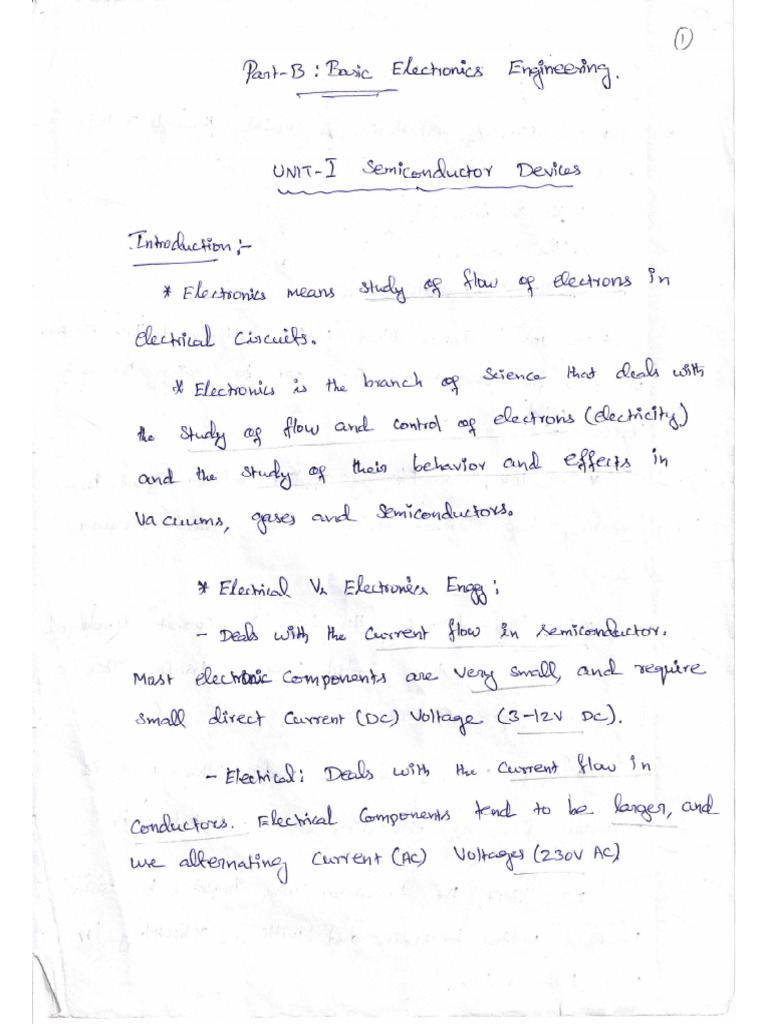 1
Part-B : Basic Electronics Engineering.
UNIT-I Semiconductor Devices
Introduction :-
* Electronics means study of flow of electrons in
electrical circuits.
* Electronics is the branch of science that deals with
the study of flow and control of electrons (electicity)
and the study of their behavior and effects in
Vacuums, gases and semiconductors.
* Electrical Vs Electronics Engg :
- Deals with the current flow in semiconductor.
Most electronic components are very small, and require
small direct current (DC) Voltage (3-12V DC).
- Electrical : Deals with the current flow in
conductors. Electrical Components tend to be larger, and
use alternating current (AC) Voltages (230V AC)